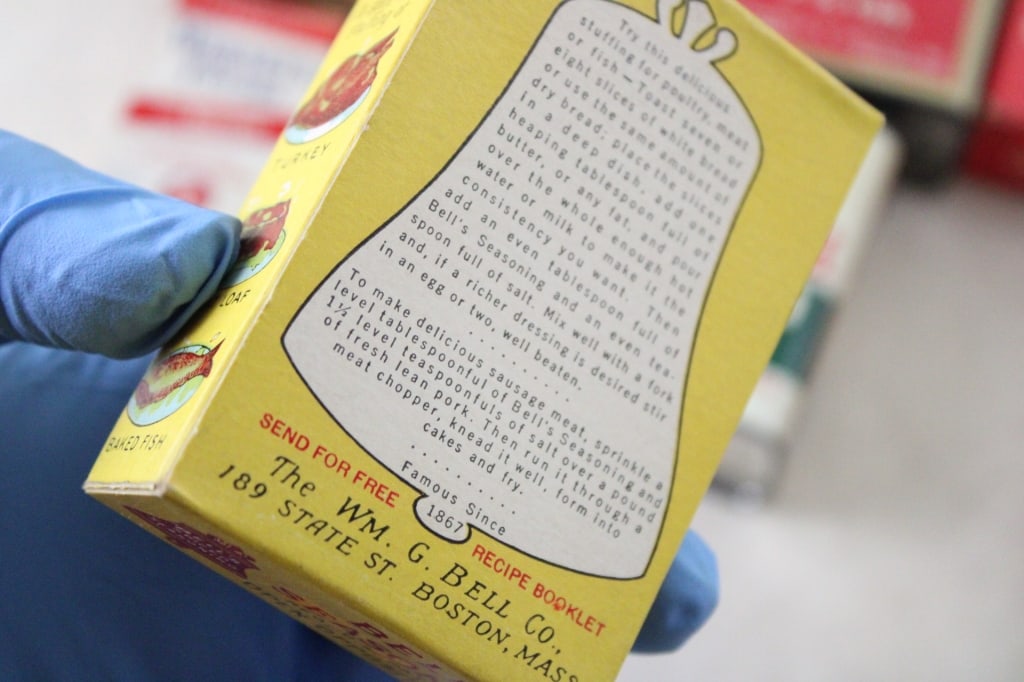 TURKEY
LOAF
BAKED FISH
Try this delicious
stuffing for poultry, meat
or fish — Toast seven or
eight slices of white bread
or use the same amount of
dry bread; place the slices
in a deep dish, add one
heaping tablespoon full of
butter, or any fat, and pour
over the whole enough hot
water or milk to make it the
consistency you want. Then
add an even tablespoon full of
Bell's Seasoning and an even tea-
spoon full of salt. Mix well with a fork
and, if a richer dressing is desired stir
in an egg or two, well beaten.
To make delicious sausage meat, sprinkle a
level tablespoonful of Bell's Seasoning and
1½ level teaspoonfuls of salt over a pound
of fresh lean pork. Then run it through a
meat chopper, knead it well, form into
cakes and fry.
Famous Since
1867
SEND FOR FREE RECIPE BOOKLET
The WM. G. BELL CO.,
189 STATE ST. BOSTON, MASS